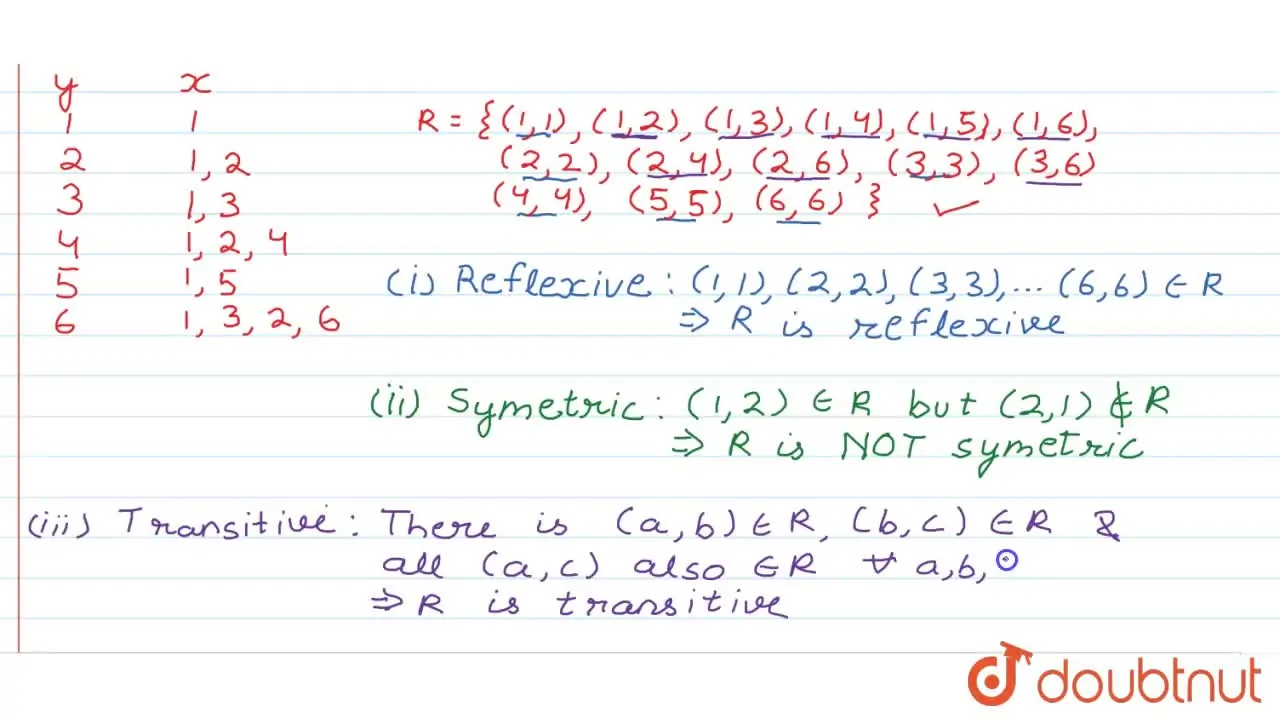 y x
1 1
2 1, 2
3 1, 3
4 1, 2, 4
5 1, 5
6 1, 3, 2, 6
R = {(1,1), (1,2), (1,3), (1,4), (1,5), (1,6),
(2,2), (2,4), (2,6), (3,3), (3,6)
(4,4), (5,5), (6,6) } ✓
(i) Reflexive : (1,1), (2,2), (3,3), ... (6,6) ∈ R
⇒ R is reflexive
(ii) Symetric : (1,2) ∈ R but (2,1) ∉ R
⇒ R is NOT symetric
(iii) Transitive : There is (a,b) ∈ R, (b,c) ∈ R &
all (a,c) also ∈ R ∀ a,b,
⇒ R is transitive
doubtnut